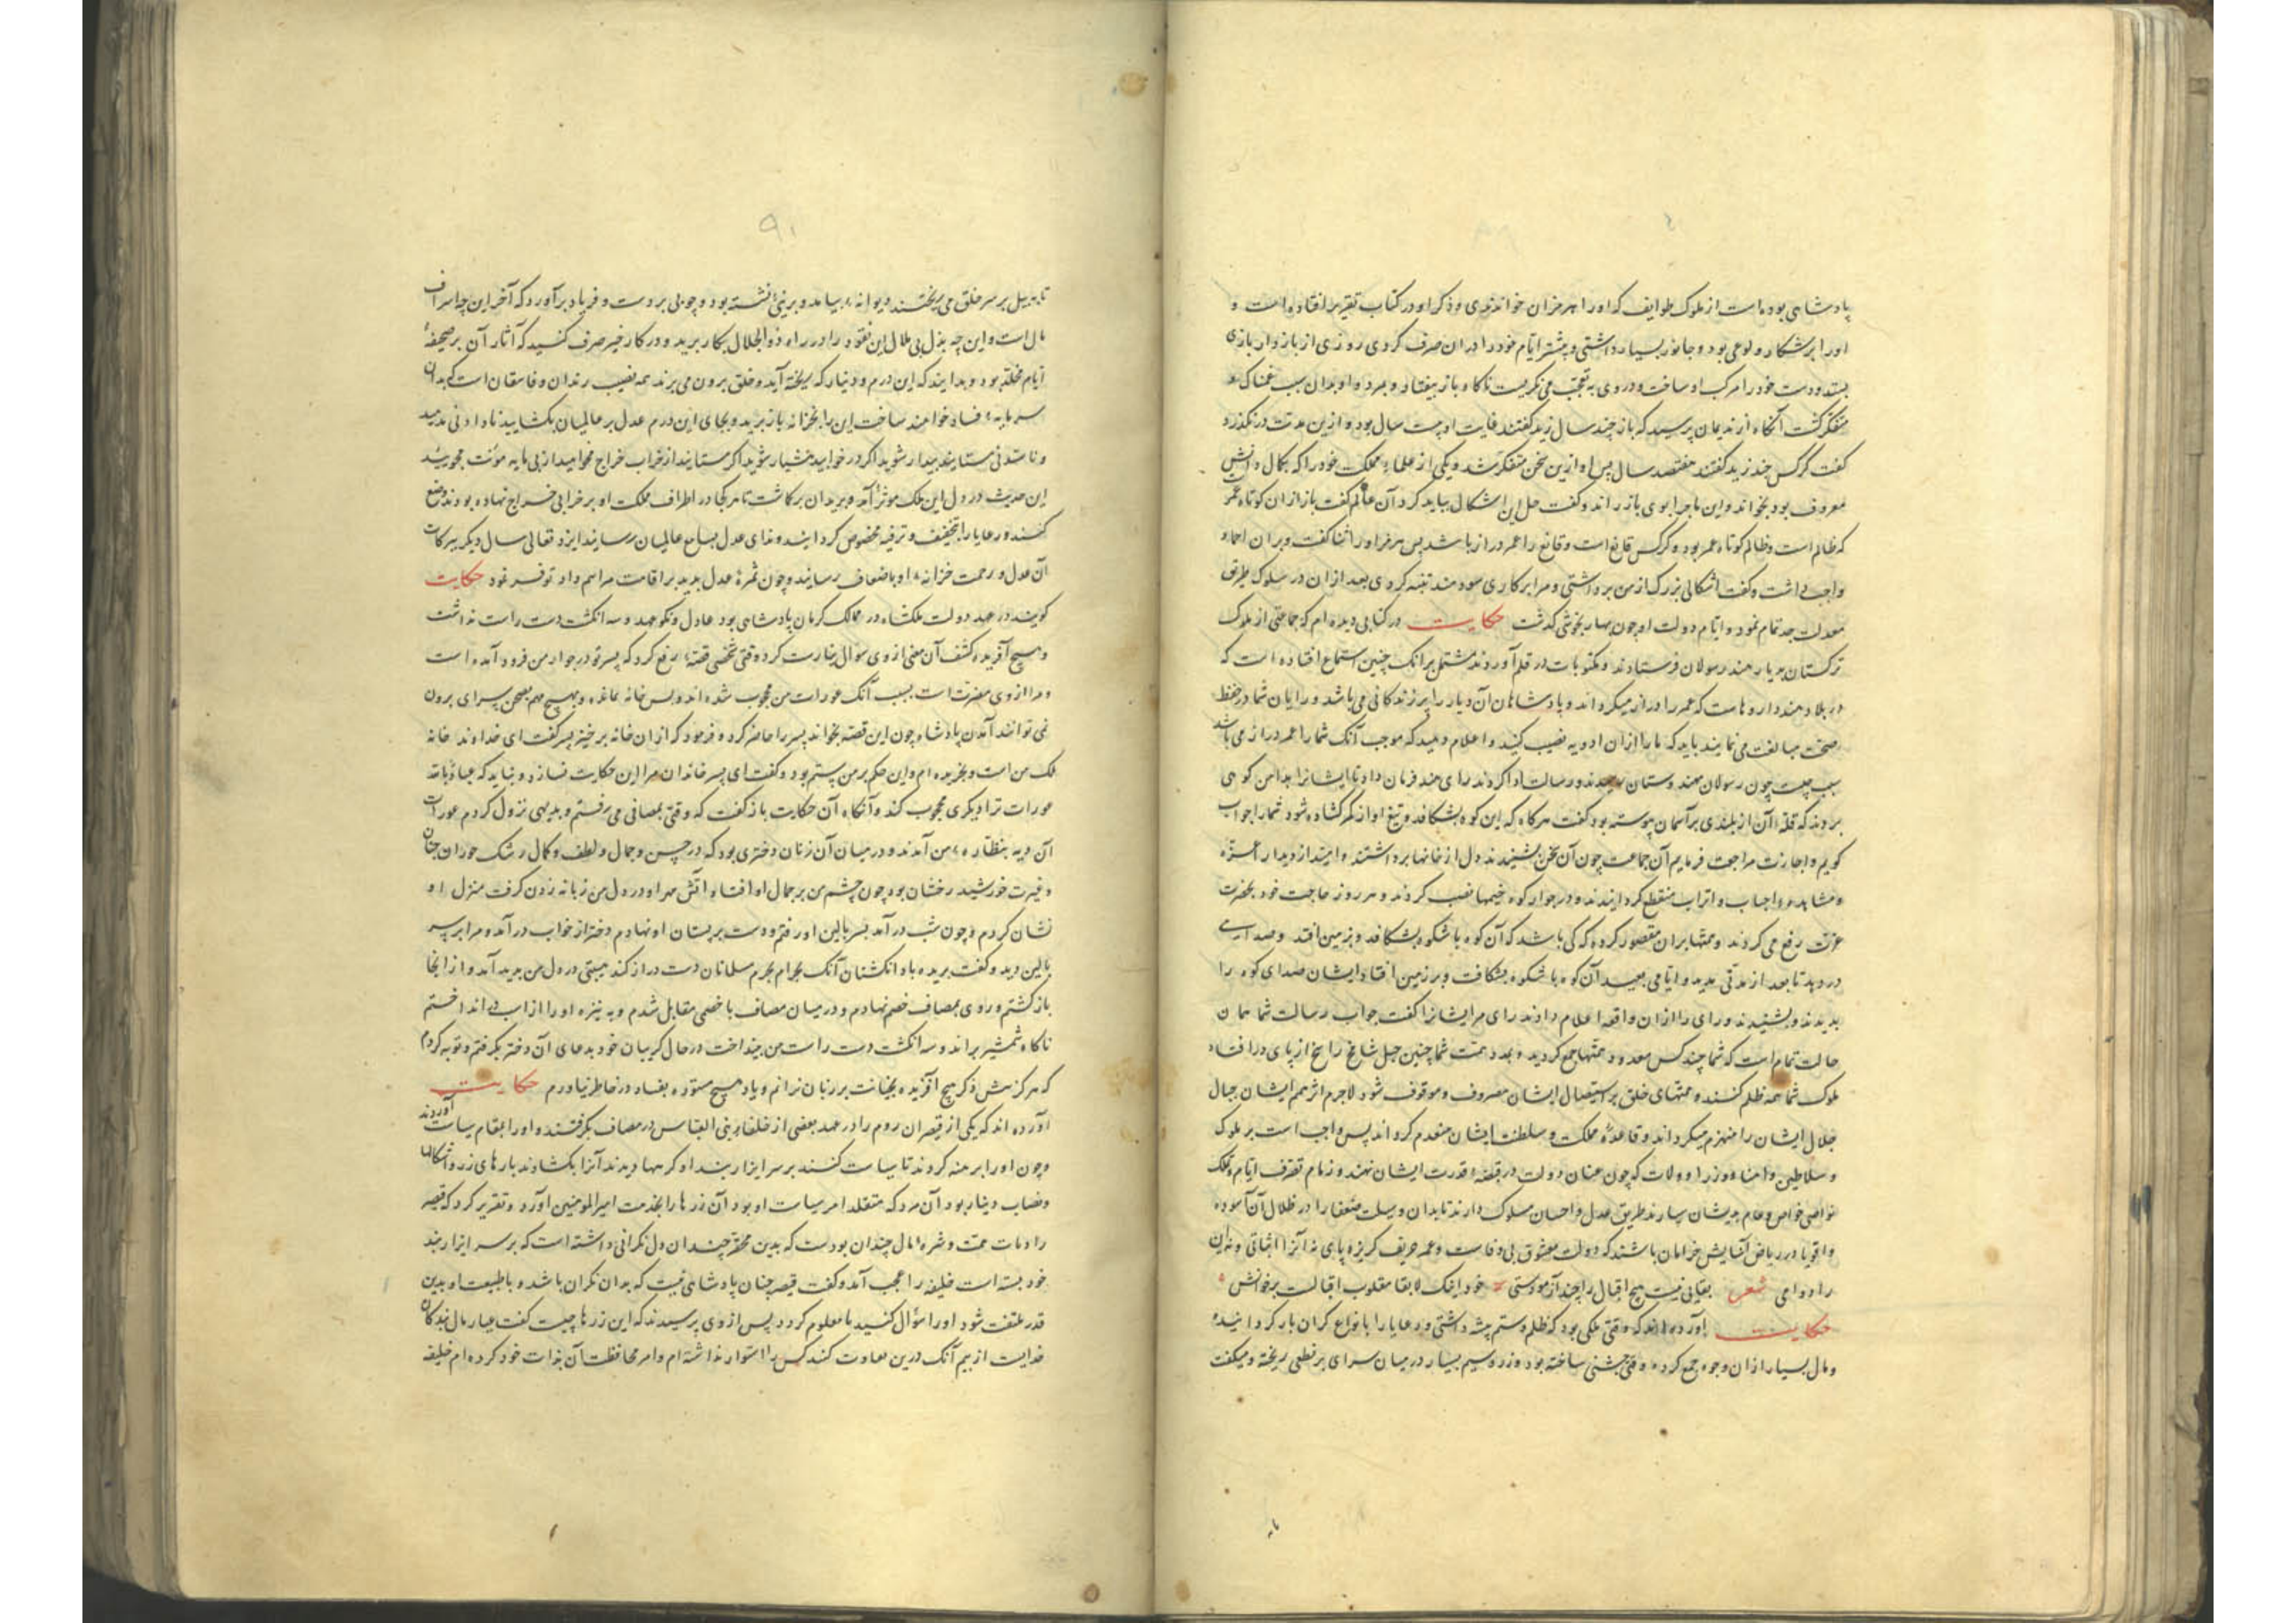 پادشاهی بوده است از ملوک طوایف که او را هرمزان خواندندی و ذکر او در کتاب تقریر افتاده است و
او را بر شکار ولوعی بود و جانور بسیار داشتی و بیشتر ایام خود را در ان صرف کردی روزی از باز وار بازی
بستد و دست خود را مرکب او ساخت و در وی به تعجب می نکریست ناکاه باز بیفتاد و بمرد و او بدان سبب غمناک و
متفکر کشت آنکاه از ندیمان پرسید که باز چند سال زید کفتند غایت او بیست سال بود و ازین مدت در نکذرد
کفت کرکس چند زید کفتند هفتصد سال پس او ازین سخن متفکر شد و یکی از علماء مملکت خود را که بکمال دانش
معروف بود بخواند و این ماجرا بوی باز راند و کفت حل این اشکال بباید کرد آن عالم کفت باز از ان کوتاه عمر
که ظالم است و ظالم کوتاه عمر بود و کرکس قانع است و قانع را عمر دراز باشد پس هرمز او را ثنا کفت و بر ان احماد
واجب داشت و کفت اشکالی بزرک از من برداشتی و مرا بر کاری سودمند تنبیه کردی بعد از ان در سلوک طریق
معدلت جد تمام نمود و ایام دولت او چون بهار بخوشی کذشت حکایت در کتابی دیده ام که جماعتی از ملوک
ترکستان بدیار هند رسولان فرستادند و مکتوبات در قلم آوردند مشتمل بر انک چنین استماع افتاده است که
در بلاد هند داروهاست که عمر را دراز میکرداند و پادشاهان آن دیار را برزندکانی می باشد و رایان شما در حفظ
صحت مبالغت می نمایند باید که ما را از ان ادویه نصیب کنید و اعلام دهید که موجب آنک شما را عمر دراز می باشد
سبب چیست چون رسولان بهندوستان رسیدند و رسالت ادا کردند رای هند فرمان داد تا ایشانرا بدامن کوهی
بردند که قله آن از بلندی بر آسمان پیوسته بود کفت هرکاه که این کوه بشکافد و تیغ او از کمر کشاده شود شما را جواب
کویم و اجازت مراجعت فرمایم آن جماعت چون آن سخن بشنیدند دل از خانها برداشتند و امید از دیدار اعزه
و مشاهده احباب و اتراب منقطع کردانیدند و در جوار کوه خیمها نصب کردند و هر روز حاجت خود بحضرت
عزت رفع می کردند و همتها بران مقصور کرده که کی باشد که آن کوه باشکوه بشکافد و بزمین افتد و صدایی
در دهد تا بعد از مدتی مدید و ایامی بعید آن کوه باشکوه بشکافت و بر زمین افتاد ایشان صدای کوه را
بدیدند و بشنیدند و رای را از ان واقعه اعلام دادند رای مر ایشانرا کفت جواب رسالت شما همان
حالت تمام است که شما چند کس معدود همتها جمع کردید و بمدد همت شما چنین جبل شامخ راسخ از پای در افتاد
ملوک شما همه ظلم کنند و همتهای خلق بر استیصال ایشان مصروف و موقوف شود لاجرم اثر همم ایشان جبال
جلال ایشان را منهزم میکرداند و قاعده مملکت و سلطنت ایشان منعدم کرداند پس واجب است بر ملوک
و سلاطین و امنا و وزرا و ولات که چون عنان دولت در قبضه قدرت ایشان نهند و زمام تصرف ایام و تملک
نواصی خواص و عوام بدیشان سپارند طریق عدل و احسان مسلوک دارند تا بدان وسیلت ضعفا را در ظلال آن آسوده
و اقویا در ریاض آسایش خرامان باشند که دولت معشوق بی وفاست و عمر حریف کریز پای نه آنرا اثباتی و نه این
را دوامی شعر بقایی نیست هیچ اقبال را چند آزمودستی خود اینک لابقا مقلوب اقبالست برخوانش
حکایت آورده اند که وقتی ملکی بود که ظلم و ستم پیشه داشتی و رعایا را بانواع کران بار کردانیده
و مال بسیار از ان وجوه جمع کرده وقتی جشنی ساخته بود و زر و سیم بسیار در میان سرای بر نطعی ریخته و میکفت
۹۱
تا به بیل بر سر خلق می ریختند دیوانه بیامد و بر نیی نشسته بود و چوبی بر دست و فریاد برآورد که آخر این چه اسراف
مال است و این چه بذل بی ملال این نقود را در راه ذوالجلال بکار برید و در کار خیر صرف کنید که آثار آن بر صحیفه
ایام مخلد بود و بدانید که این درم و دینار که ریخته آید و خلق برون می برند همه نصیب رندان و فاسقان است که بدان
سرمایه فساد خواهند ساخت این را بخزانه باز برید و بجای این درم عدل بر عالمیان بکشایید نادادنی مدهید
و ناستدنی مستانید بیدار شوید اکر در خوابید هشیار شوید اکر مستانید از خراب خراج مخواهید از بی مایه مؤنت مجویید
این حدیث در دل این ملک موثر آمد و بریدان برکاشت تا هر کجا در اطراف مملکت او بر خرابی خراج نهاده بودند وضع
کنند و رعایا را بتخفیف و ترفیه مخصوص کردانیند و ندای عدل بسامع عالمیان رسانید ایزد تعالی سال دیکر ببرکات
آن عدل و رحمت خزانه او باضعاف رسانید و چون ثمره عدل بدید بر اقامت مراسم داد توفر نمود حکایت
کویند در عهد دولت ملکشاه در ممالک کرمان پادشاهی بود عادل و نکوعهد و سه انکشت دست راست نداشت
و هیچ آفریده کشف آن معنی از وی سؤال نیارست کرد وقتی شخصی قصه رفع کرد که پسر تو در جوار من فرود آمده است
و مرا از وی مضرت است بسبب آنک عورات من محجوب شده اند و پس خانه بمانده و بهیچ مهم بصحن سرای برون
نمی توانند آمدن پادشاه چون این قصه بخواند پسر را حاضر کرد و فرمود که از ان خانه برخیز پسر کفت ای خداوند خانه
ملک من است و بخریده ام و این حکم بر من ستم بود و کفت ای پسر خاندان مرا این حکایت نسازد و نباید که عیاذا بالله
عورات ترا دیکری محجوب کند و آنکاه آن حکایت باز کفت که وقتی بمصافی می رفتم و بدیهی نزول کردم عورات
آن دیه بنظاره من آمدند و در میان آن زنان دختری بود که در حسن و جمال و لطف و کمال رشک حوران جنان
و غیرت خورشید رخشان بود چون چشم من بر جمال او افتاد آتش مهر او در دل من زبانه زدن کرفت منزل او
نشان کردم و چون شب درآمد بسر بالین او رفتم و دست بر پستان او نهادم دختر از خواب درآمد و مرا بر سر
بالین دید و کفت بریده باد انکشتان آنک بحرام بحرم مسلمانان دست دراز کند هیبتی در دل من بدید آمد و از انجا
باز کشتم و روی بمصاف خصم نهادم و در میان مصاف با خصمی مقابل شدم و به نیزه او را از اسب در انداختم
ناکاه شمشیر براند و سه انکشت دست راست من بینداخت در حال کریبان خود بدعای آن دختر بکرفتم و توبه کردم
که هرکز بیش ذکر هیچ آفریده بخیانت بر زبان نرانم و یاد هیچ مستوره بفساد در خاطر نیاورم حکایت
آورده اند که یکی از قیصران روم را در عهد بعضی از خلفاء بنی العباس در مصاف بکرفتند و او را بمقام سیاست آوردند
و چون او را برهنه کردند تا سیاست کنند بر سر ازار بند او کرهها دیدند آنرا بکشادند بارهای زر و
و نصاب دینار بود آن مرد که متقلد امر سیاست او بود آن زرها را بخدمت امیرالمومنین آورد و تقریر کرد که قیصر
را دمات همت و شره مال چندان بودست که بدین محقر چندان دل نکرانی داشته است که بر سر ازار بند
خود بسته است خلیفه را عجب آمد و کفت قیصر چنان پادشاهی نیست که بدان نکران باشد و با طبیعت او بدین
قدر ملتفت شود او را سؤال کنید تا معلوم کردد پس از وی پرسیدند که این زرها چیست کفت عیار مال بندکان
خدایست از بیم آنک درین تفاوت کنند کس را استوار نداشته ام و امر محافظت آن بذات خود کرده ام خلیفه